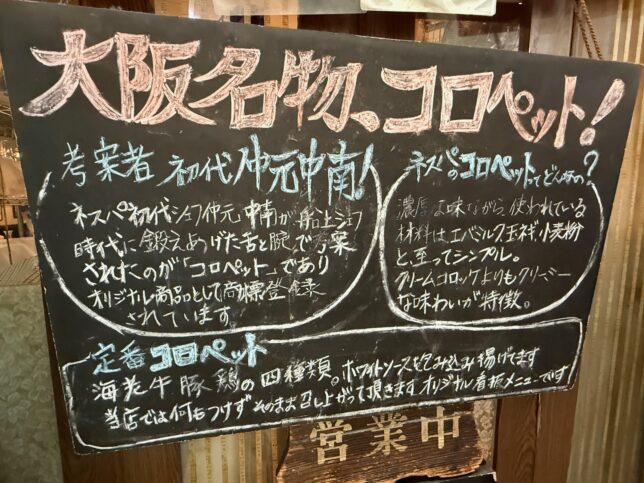 大阪名物、コロペット!
考案者 初代 仲元中南!
ネスパ初代シェフ仲元中南が船上シェフ
時代に鍛えあげた舌と腕で考案
されたのが「コロペット」であり
オリジナル商品として商標登録
されています
ネスパのコロペットってどんなの?
濃厚な味ながら使われている
材料はエバミルク、玉ネギ、小麦粉
と、至ってシンプル。
クリームコロッケよりもクリーミー
な味わいが特徴。
定番コロペット
海老牛豚鶏の四種類。ホワイトソースを包み込み揚げてます
当店では何もつけずそのままお召し上がって頂きます オリジナル看板メニューです!
営業中